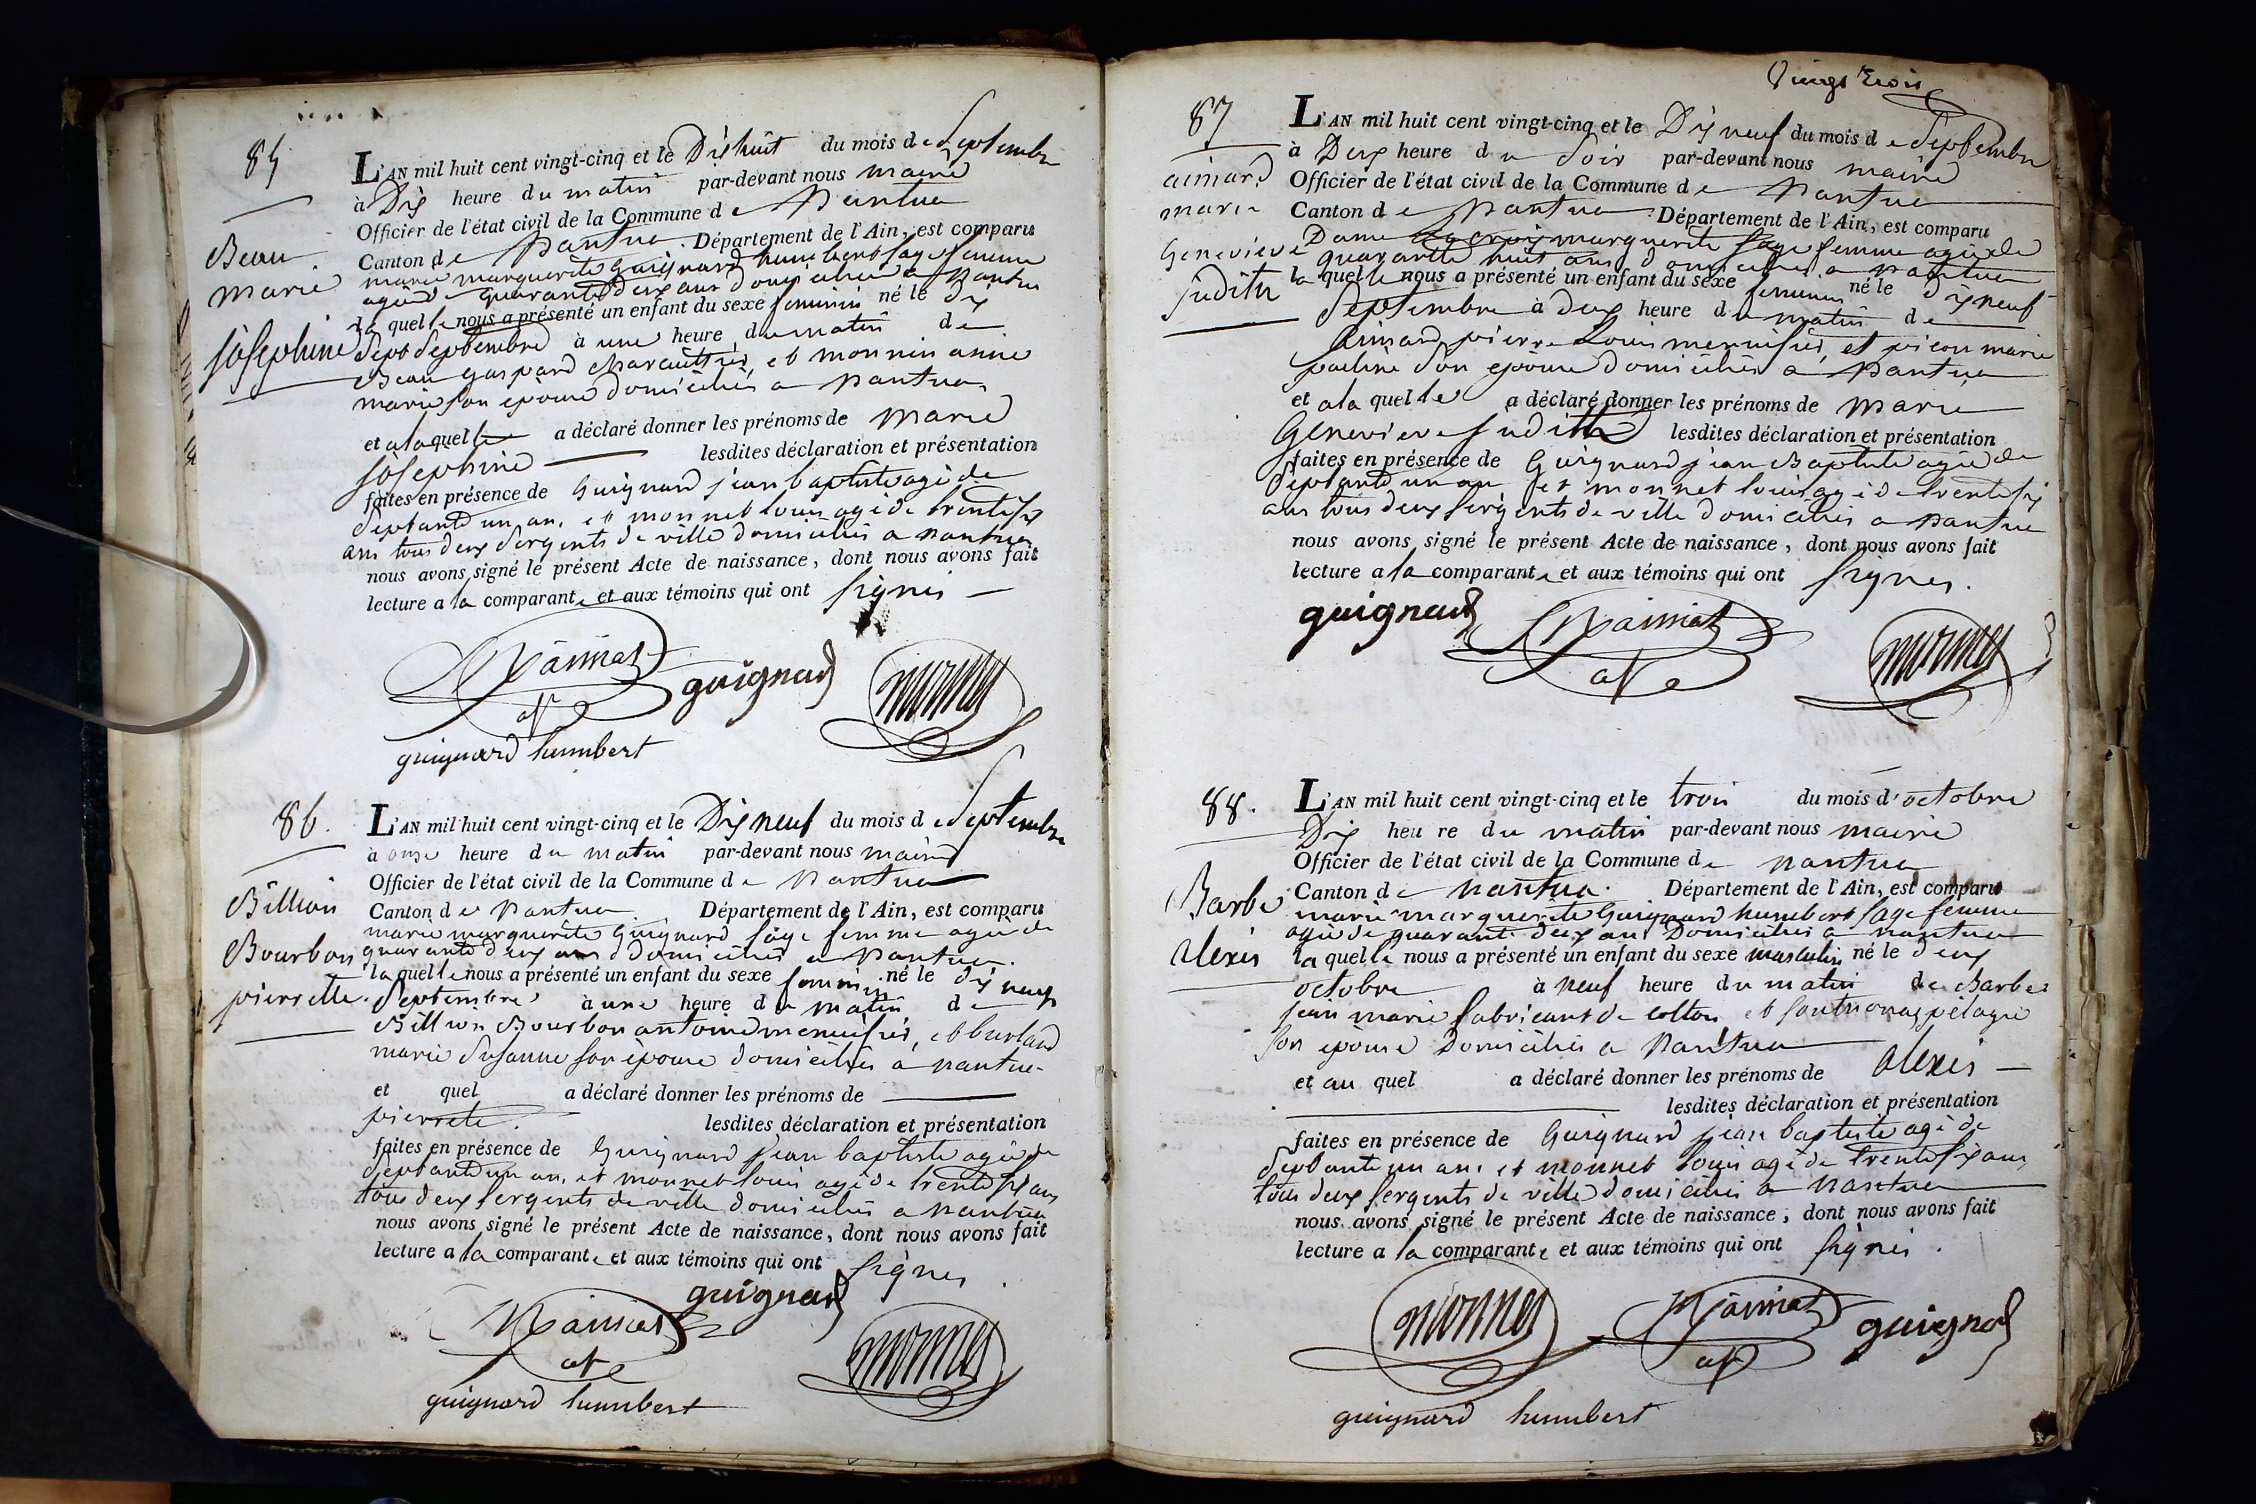 85
Beau
marie
joséphine
L'AN mil huit cent vingt-cinq et le Dix huit du mois de Septembre
à Dix heure du matin par-devant nous maire
Officier de l'état civil de la Commune de Nantua
Canton de Nantua. Département de l'Ain, est comparu
marie marguerite Guignard humbert sage femme
agée de quarante deux ans domiciliée a Nantua
la quelle nous a présenté un enfant du sexe feminin né le Dix
sept Septembre à une heure du matin de
Beau gaspard et monnin anne
marie son épouse domiciliés a Nantua
et a la quelle a déclaré donner les prénoms de marie
joséphine lesdites déclaration et présentation
faites en présence de Guignard jean baptiste agé de
septante un an, et monnet louis agé de trente six
ans tous deux sergents de ville domiciliés a nantua
nous avons signé le présent Acte de naissance, dont nous avons fait
lecture a la comparante et aux témoins qui ont signés
guignard monnet
guignard humbert
86.
Billion
Bourbon
pierrette.
L'AN mil huit cent vingt-cinq et le Dix neuf du mois de Septembre
à onze heure du matin par-devant nous maire
Officier de l'état civil de la Commune de Nantua
Canton de Nantua Département de l'Ain, est comparu
marie marguerite Guignard sage femme agée de
quarante deux ans domiciliée a Nantua.
la quelle nous a présenté un enfant du sexe feminin né le dix neuf
Septembre à une heure du matin de
Billion Bourbon antoine menuisier, et burland
marie susanne son épouse domiciliés a nantua
et quel a déclaré donner les prénoms de
pierrete. lesdites déclaration et présentation
faites en présence de Guignard jean baptiste agé de
septante un an, et monnet louis agé de trente six ans
tous deux sergents de ville domiciliés a nantua
nous avons signé le présent Acte de naissance, dont nous avons fait
lecture a la comparante et aux témoins qui ont signés
guignard
monnet
guignard humbert
Vingt trois
87
aimard
marie
Genevieve
judith
L'AN mil huit cent vingt-cinq et le Dix neuf du mois de Septembre
à Deux heure du Soir par-devant nous maire
Officier de l'état civil de la Commune de Nantua
Canton de Nantua. Département de l'Ain, est comparu
Dame Lacroix marguerite sage femme agée de
quarante huit ans domiciliée a nantua
la quelle nous a présenté un enfant du sexe feminin né le dix neuf
Septembre à deux heure du matin de
aimard pierre Louis menuisier, et picon marie
pauline son epouse domiciliés a Nantua
et a la quelle a déclaré donner les prénoms de marie
Genevieve judith lesdites déclaration et présentation
faites en présence de Guignard jean Baptiste agé de
septante un an et monnet louis agé de trente six
ans tous deux sergents de ville domiciliés a nantua
nous avons signé le présent Acte de naissance, dont nous avons fait
lecture a la comparante et aux témoins qui ont signés.
guignard monnet
88.
Barbe
alexis
L'AN mil huit cent vingt-cinq et le trois du mois d'octobre
Dix heure du matin par-devant nous maire
Officier de l'état civil de la Commune de nantua
Canton de nantua. Département de l'Ain, est comparu
marie marguerite Guignard humbert sage femme
agée de quarante deux ans Domiciliée a nantua
la quelle nous a présenté un enfant du sexe masculin né le deux
octobre à neuf heure du matin de Barbe
jean marie fabricant de cotton et pélagie
son epouse Domiciliés a Nantua
et au quel a déclaré donner les prénoms de alexis
lesdites déclaration et présentation
faites en présence de Guignard jean baptiste agé de
septante un an, et monnet louis agé de trente six ans
tous deux sergents de ville domiciliés a nantua
nous avons signé le présent Acte de naissance, dont nous avons fait
lecture a la comparante et aux témoins qui ont signés.
monnet guignard
guignard humbert